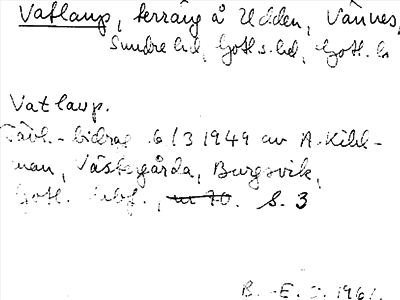 Vatlaup, terräng å Udden, Vännes,
Sundre sd, Gotl s. hd, Gotl. ln
Vatlaup.
Tävl.-bidrag 6/3 1949 av A. Kihl-
man, Västergårda, Burgsvik,
Gotl. S. 3
B. E. 1961.